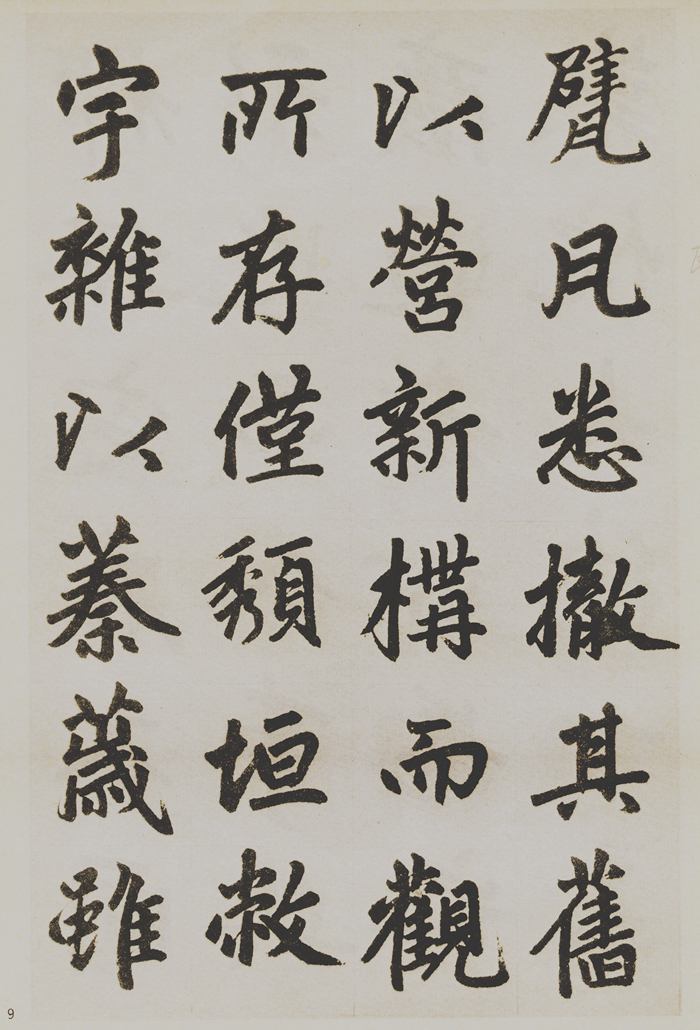 甓瓦悉撤其舊
以營新構而觀
所存僅頽垣敝
宇雜以蓁薉雖
9